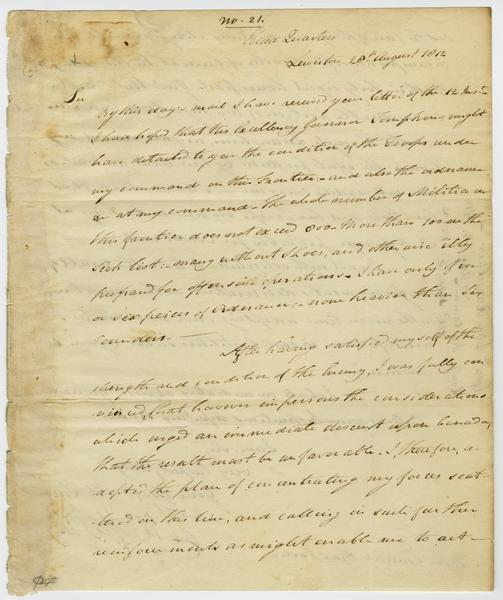 no. 21.
Head Quarters
Lewiston 28th August 1812
Sir
By this day's mail I have received your letter of the 12 Inst.
I have hoped that his Excellency Governor Tompkins might
have detailed to you the condition of the Troops under
my command on this frontier - and also the ordnance
&c at my command - The whole number of Militia on
this frontier does not exceed 800 - More than 100 on the
Sick list - many without Shoes, and otherwise illy
prepared for offensive operations. I have only five
or six peices of ordnance - none heavier than Six
Pounders -
After having satisfied myself of the
strength and condition of the Enemy, I was fully con-
vinced, that however imperious the considerations
which urged an immediate descent upon Canada,
that the result must be unfavorable. I, therefore, a-
dopted the plan of concentrating my forces scat-
tered on this line, and calling in such further
reinforcements as might enable me to act -